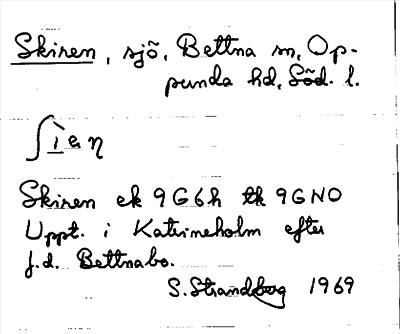 Skiren, sjö, Bettna sn, Op-
punda hd, Söd. l.
ʃìeη
Skiren ek 9G6h tk 9GNO
Uppt. i Katrineholm efter
f.d. Bettnabo.
S. Strandberg 1969